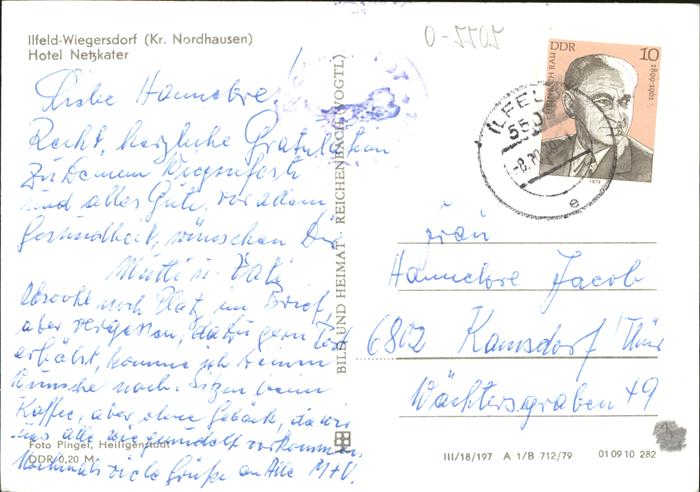 Ilfeld-Wiegersdorf (Kr. Nordhausen)
Hotel Netzkater
Liebe Hannelore!
Recht herzliche Gratulation
zu Deinem Wiegenfeste
und alles Gute, vor allem
Gesundheit, wünschen Dir
Mutti u. Vati
noch Platz im Brief,
aber vergessen, dazu gern Text
erhälst, komme ich Deinem
Wunsche nach. Sitzen beim
Kaffee, aber ohne Gebäck, da wir
uns alle wie gemästet vorkommen.
Nochmals viele Grüße an Alle M+V.
Foto Pingel, Heiligenstadt
DDR 0,20 M
BILD UND HEIMAT REICHENBACH (VOGTL)
O-5505
DDR 10
HEINRICH RAU 1899-1961
1979
ILFELD
550
e
Frau
Hannelore Jacob
6802 Kamsdorf/Thür
Wächtersgraben 49
III/18/197 A 1/B 712/79 01 09 10 282